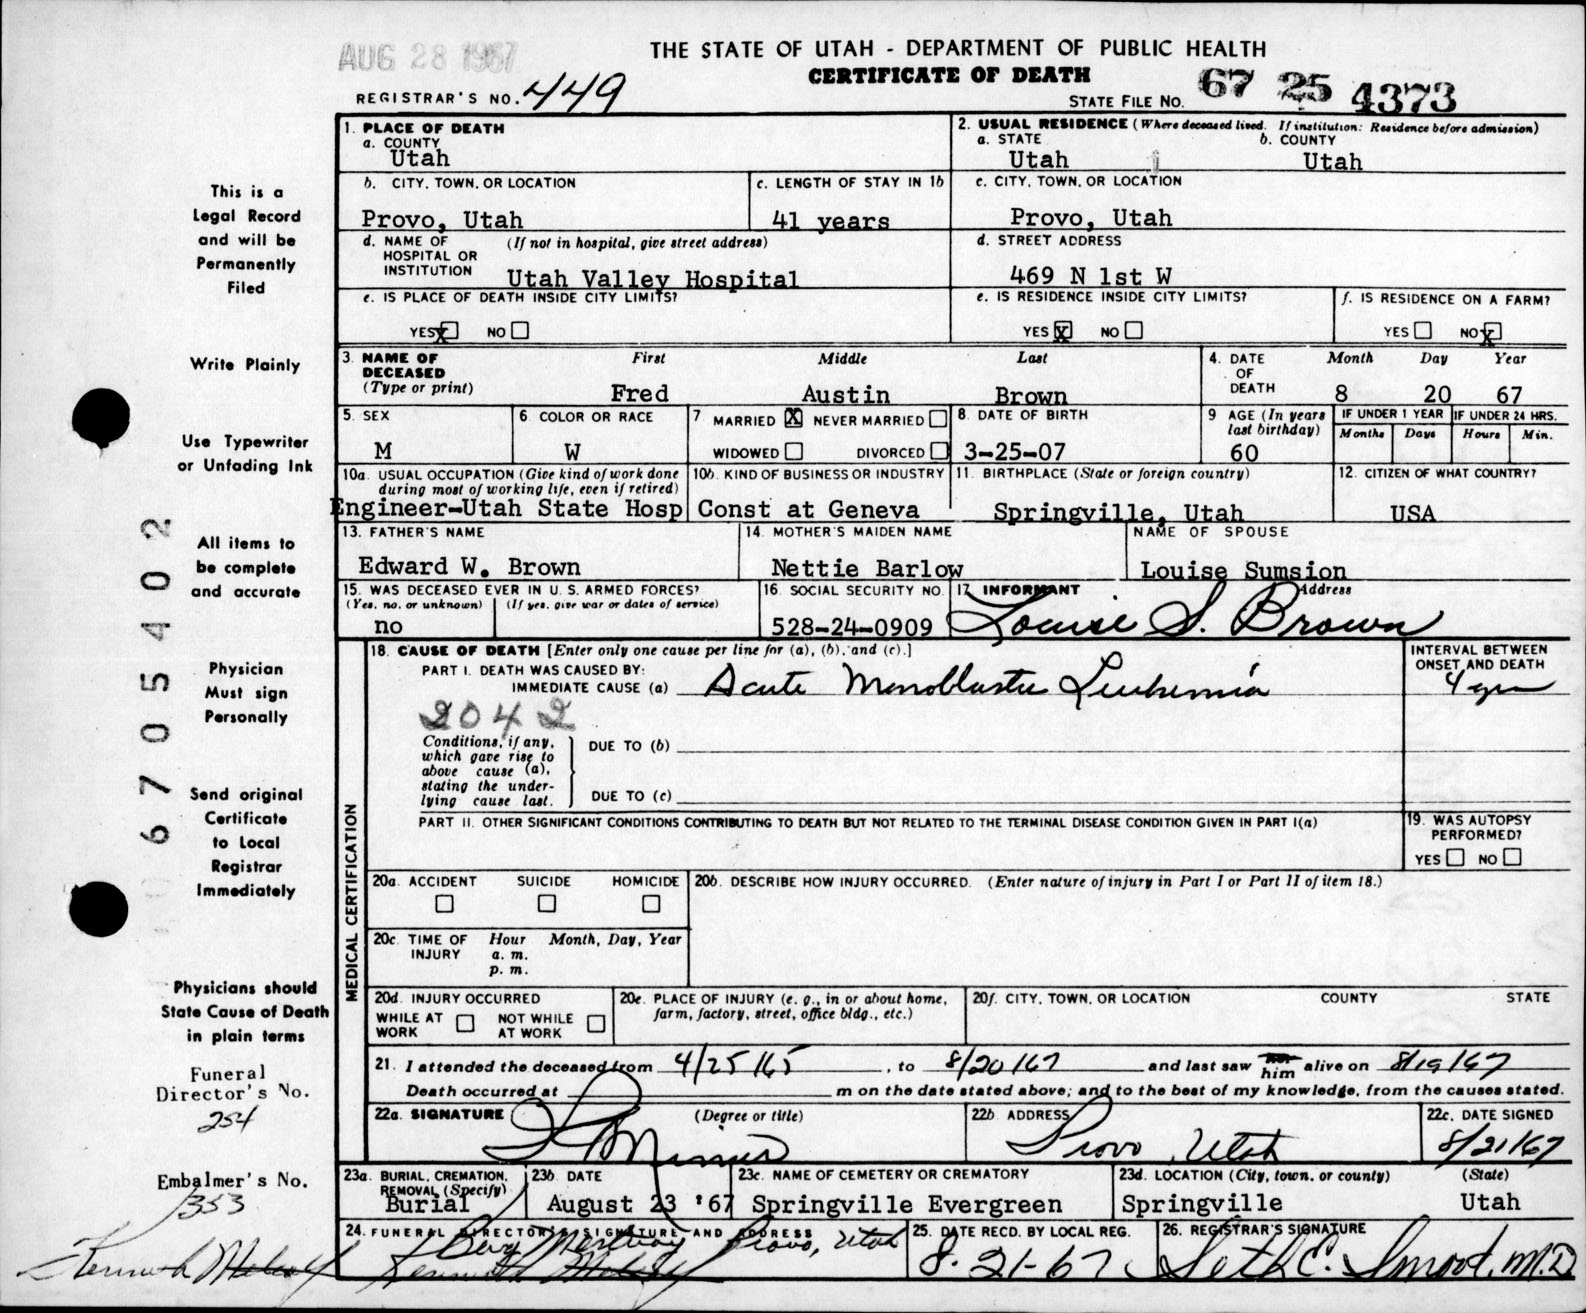 AUG 28 1967
THE STATE OF UTAH - DEPARTMENT OF PUBLIC HEALTH
CERTIFICATE OF DEATH
REGISTRAR'S NO. 449
STATE FILE NO. 67 25 4373
This is a
Legal Record
and will be
Permanently
Filed
Write Plainly
Use Typewriter
or Unfading Ink
All items to
be complete
and accurate
Physician
Must sign
Personally
Send original
Certificate
to Local
Registrar
Immediately
Physicians should
State Cause of Death
in plain terms
Funeral
Director's No.
254
Embalmer's No.
353
6705402
1. PLACE OF DEATH
a. COUNTY
Utah
2. USUAL RESIDENCE (Where deceased lived. If institution: Residence before admission)
a. STATE b. COUNTY
Utah Utah
b. CITY, TOWN, OR LOCATION
Provo, Utah
c. LENGTH OF STAY IN 1b
41 years
c. CITY, TOWN, OR LOCATION
Provo, Utah
d. NAME OF (If not in hospital, give street address)
HOSPITAL OR
INSTITUTION Utah Valley Hospital
d. STREET ADDRESS
469 N 1st W
e. IS PLACE OF DEATH INSIDE CITY LIMITS?
YES X NO
e. IS RESIDENCE INSIDE CITY LIMITS?
YES X NO
f. IS RESIDENCE ON A FARM?
YES NO X
3. NAME OF First Middle Last
DECEASED
(Type or print) Fred Austin Brown
4. DATE Month Day Year
OF
DEATH 8 20 67
5. SEX
M
6 COLOR OR RACE
W
7 MARRIED X NEVER MARRIED
WIDOWED DIVORCED
8. DATE OF BIRTH
3-25-07
9 AGE (In years
last birthday)
60
IF UNDER 1 YEAR IF UNDER 24 HRS.
Months Days Hours Min.
10a. USUAL OCCUPATION (Give kind of work done
during most of working life, even if retired)
Engineer-Utah State Hosp
10b. KIND OF BUSINESS OR INDUSTRY
Const at Geneva
11. BIRTHPLACE (State or foreign country)
Springville, Utah
12. CITIZEN OF WHAT COUNTRY?
USA
13. FATHER'S NAME
Edward W. Brown
14. MOTHER'S MAIDEN NAME
Nettie Barlow
NAME OF SPOUSE
Louise Sumsion
15. WAS DECEASED EVER IN U. S. ARMED FORCES?
(Yes, no, or unknown) (If yes, give war or dates of service)
no
16. SOCIAL SECURITY NO.
528-24-0909
17. INFORMANT Address
Louise S. Brown
MEDICAL CERTIFICATION
18. CAUSE OF DEATH [Enter only one cause per line for (a), (b), and (c).]
INTERVAL BETWEEN
ONSET AND DEATH
PART I. DEATH WAS CAUSED BY:
IMMEDIATE CAUSE (a) Acute Monoblastic Leukemia
2042
Conditions, if any,
which gave rise to
above cause (a),
stating the under-
lying cause last.
DUE TO (b)
DUE TO (c)
PART II. OTHER SIGNIFICANT CONDITIONS CONTRIBUTING TO DEATH BUT NOT RELATED TO THE TERMINAL DISEASE CONDITION GIVEN IN PART I(a)
19. WAS AUTOPSY
PERFORMED?
YES NO
20a. ACCIDENT SUICIDE HOMICIDE
20b. DESCRIBE HOW INJURY OCCURRED. (Enter nature of injury in Part I or Part II of item 18.)
20c. TIME OF Hour Month, Day, Year
INJURY a. m.
p. m.
20d. INJURY OCCURRED
WHILE AT NOT WHILE
WORK AT WORK
20e. PLACE OF INJURY (e. g., in or about home,
farm, factory, street, office bldg., etc.)
20f. CITY, TOWN, OR LOCATION COUNTY STATE
21. I attended the deceased from 4/25/65, to 8/20/67 and last saw him alive on 8/19/67
Death occurred at m on the date stated above; and to the best of my knowledge, from the causes stated.
22a. SIGNATURE (Degree or title)
22b. ADDRESS
Provo, Utah
22c. DATE SIGNED
8/21/67
23a. BURIAL, CREMATION,
REMOVAL (Specify)
Burial
23b. DATE
August 23 '67
23c. NAME OF CEMETERY OR CREMATORY
Springville Evergreen
23d. LOCATION (City, town, or county) (State)
Springville Utah
24. FUNERAL DIRECTOR'S SIGNATURE AND ADDRESS
Berg Mortuary Provo, Utah
25. DATE RECD. BY LOCAL REG.
8-21-67
26. REGISTRAR'S SIGNATURE
Seth E. Smoot, M.D.